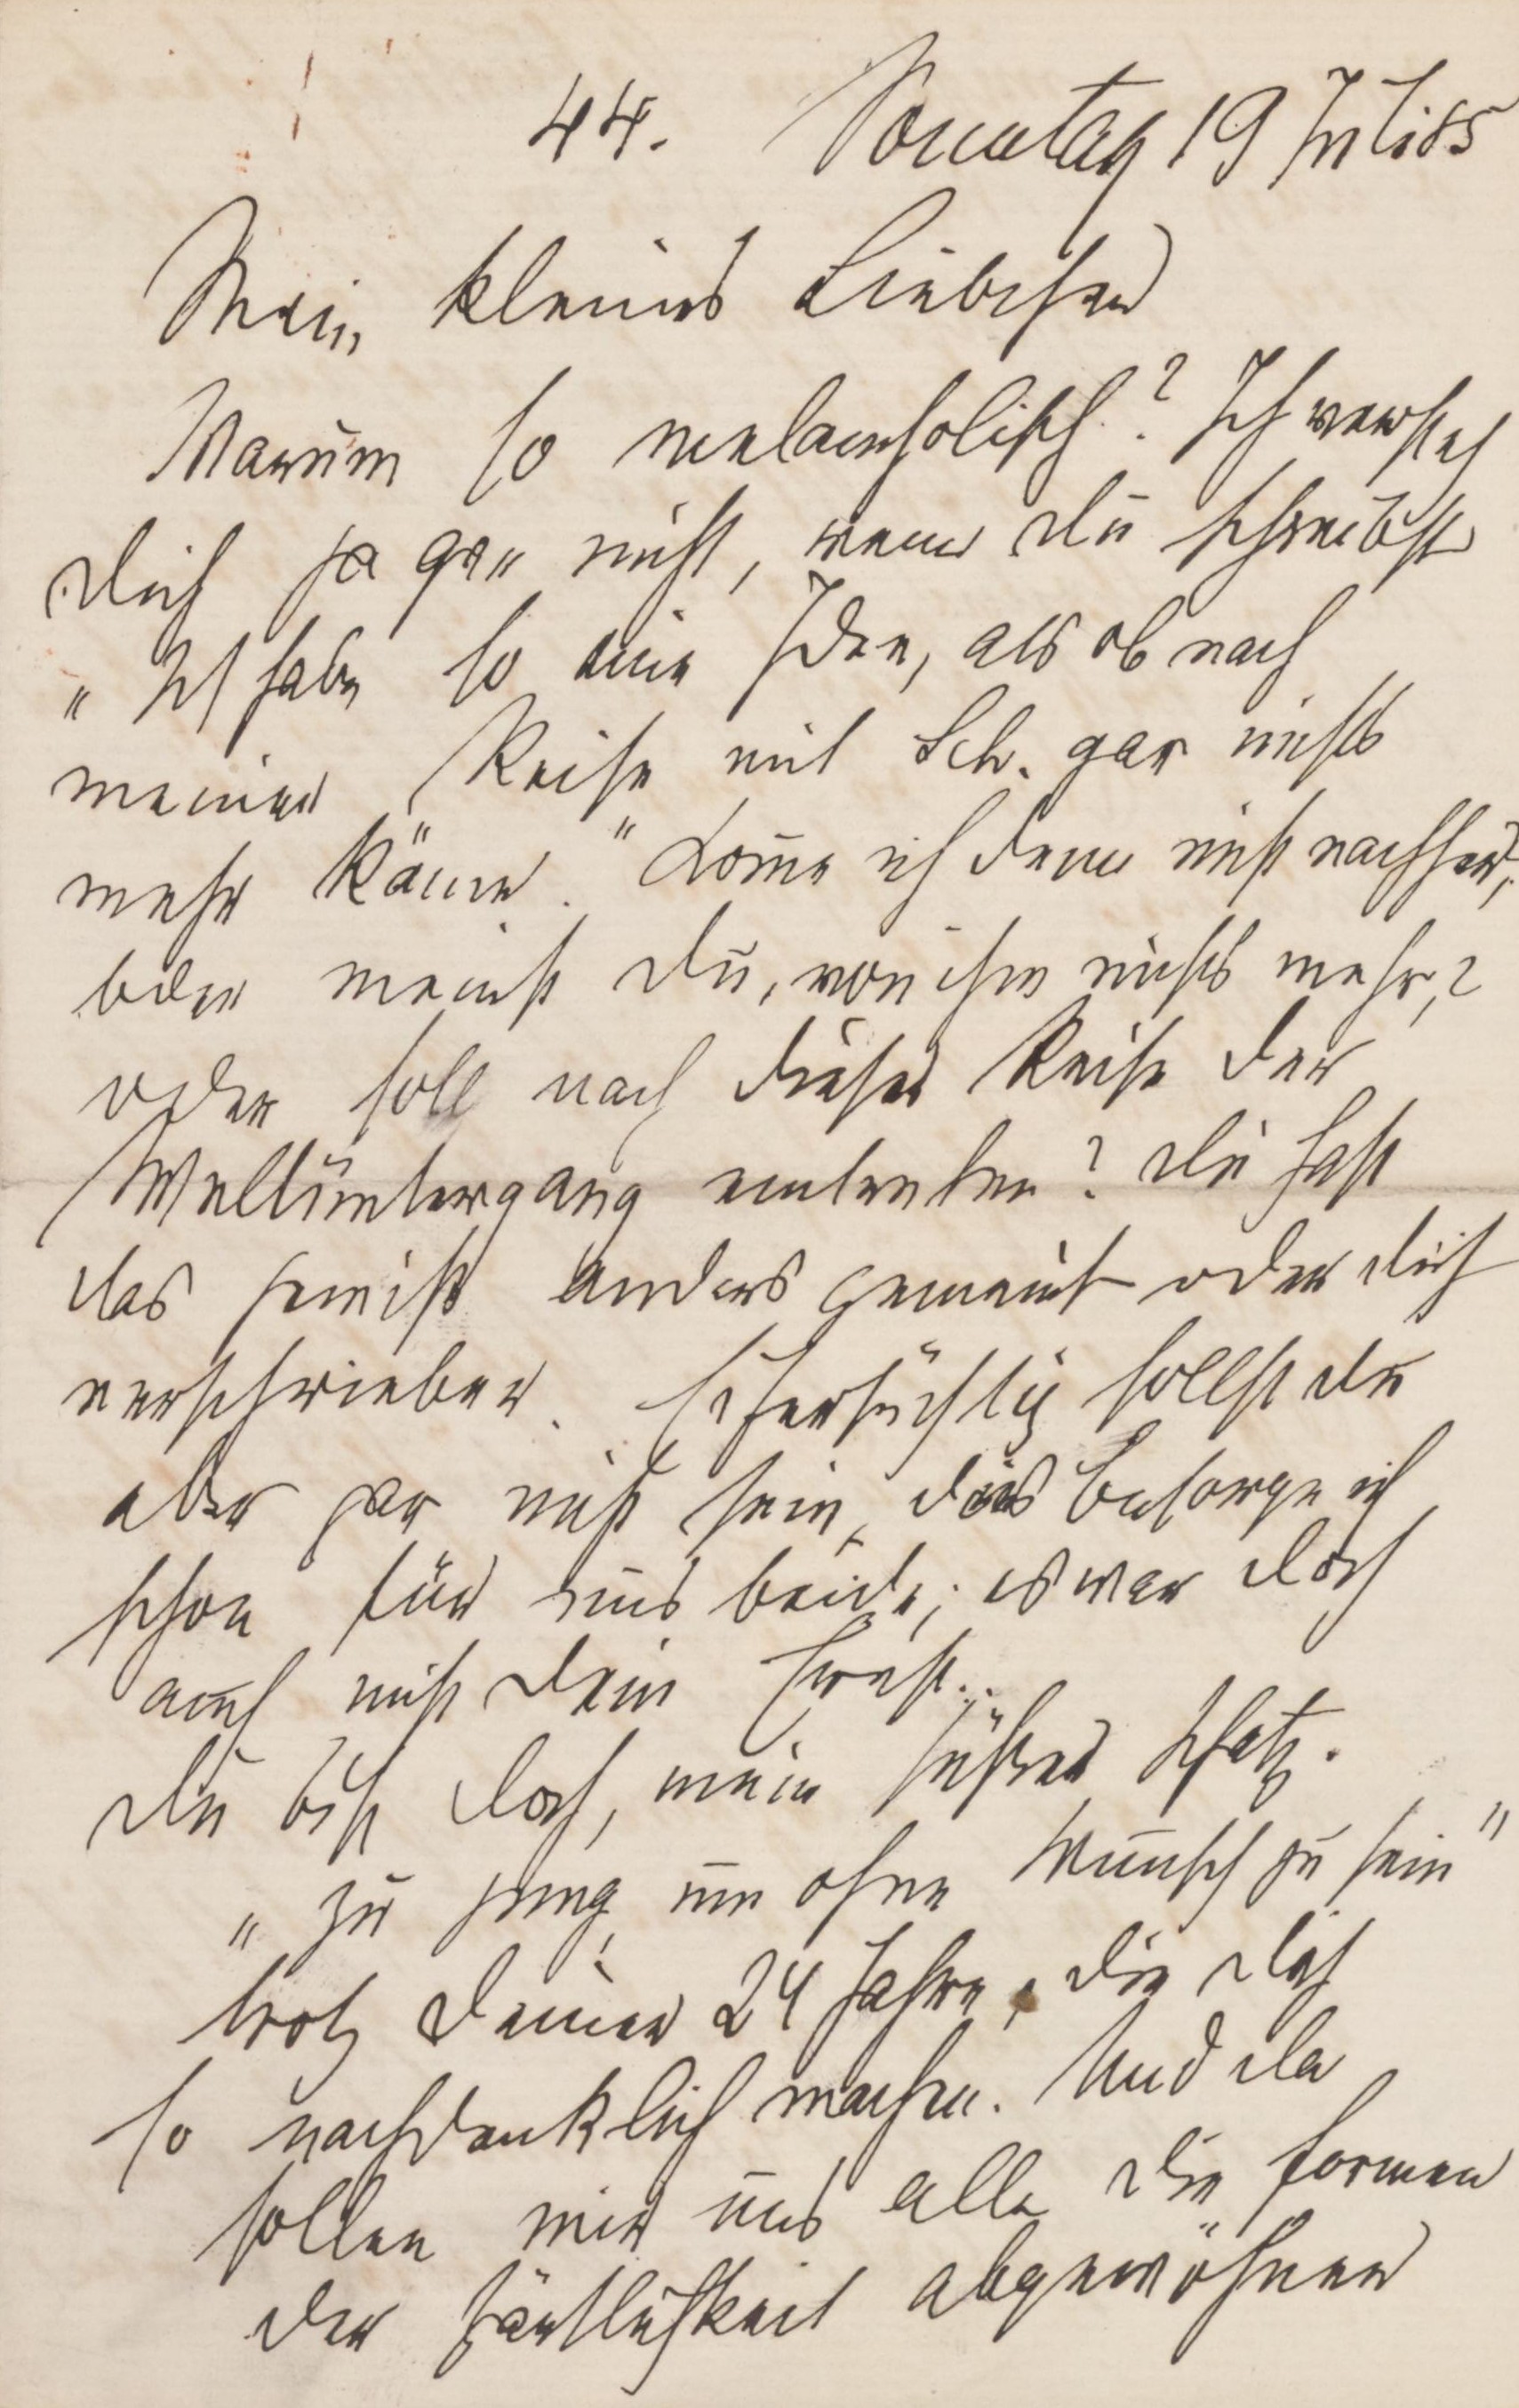 44. Sonntag 19 Juli 85
Mein kleines Liebchen
Warum so melancholisch? Ich versteh
Dich ja gar nicht, wenn Du schreibst
„Ich habe so eine Idee, als ob nach
meiner Reise mit Sch. gar nichts
mehr käme." Komme ich denn nicht nachher,
oder meinst Du, von ihm nichts mehr,?
oder soll nach dieser Reise der
Weltuntergang eintreten? Du hast
das gewiß anders gemeint oder Dich
verschrieben. Eifersüchtig sollst Du
aber gar nicht sein, das besorge ich
schon für uns beide; es war doch
auch nicht Dein Ernst.
Du bist doch, mein süßer Schatz.
„zu jung, um ohne Wunsch zu sein"
trotz Deiner 24 Jahre, die Dich
so nachdenklich machen. Und da
sollen wir uns alle die Formen
der Zärtlichkeit abgewöhnen